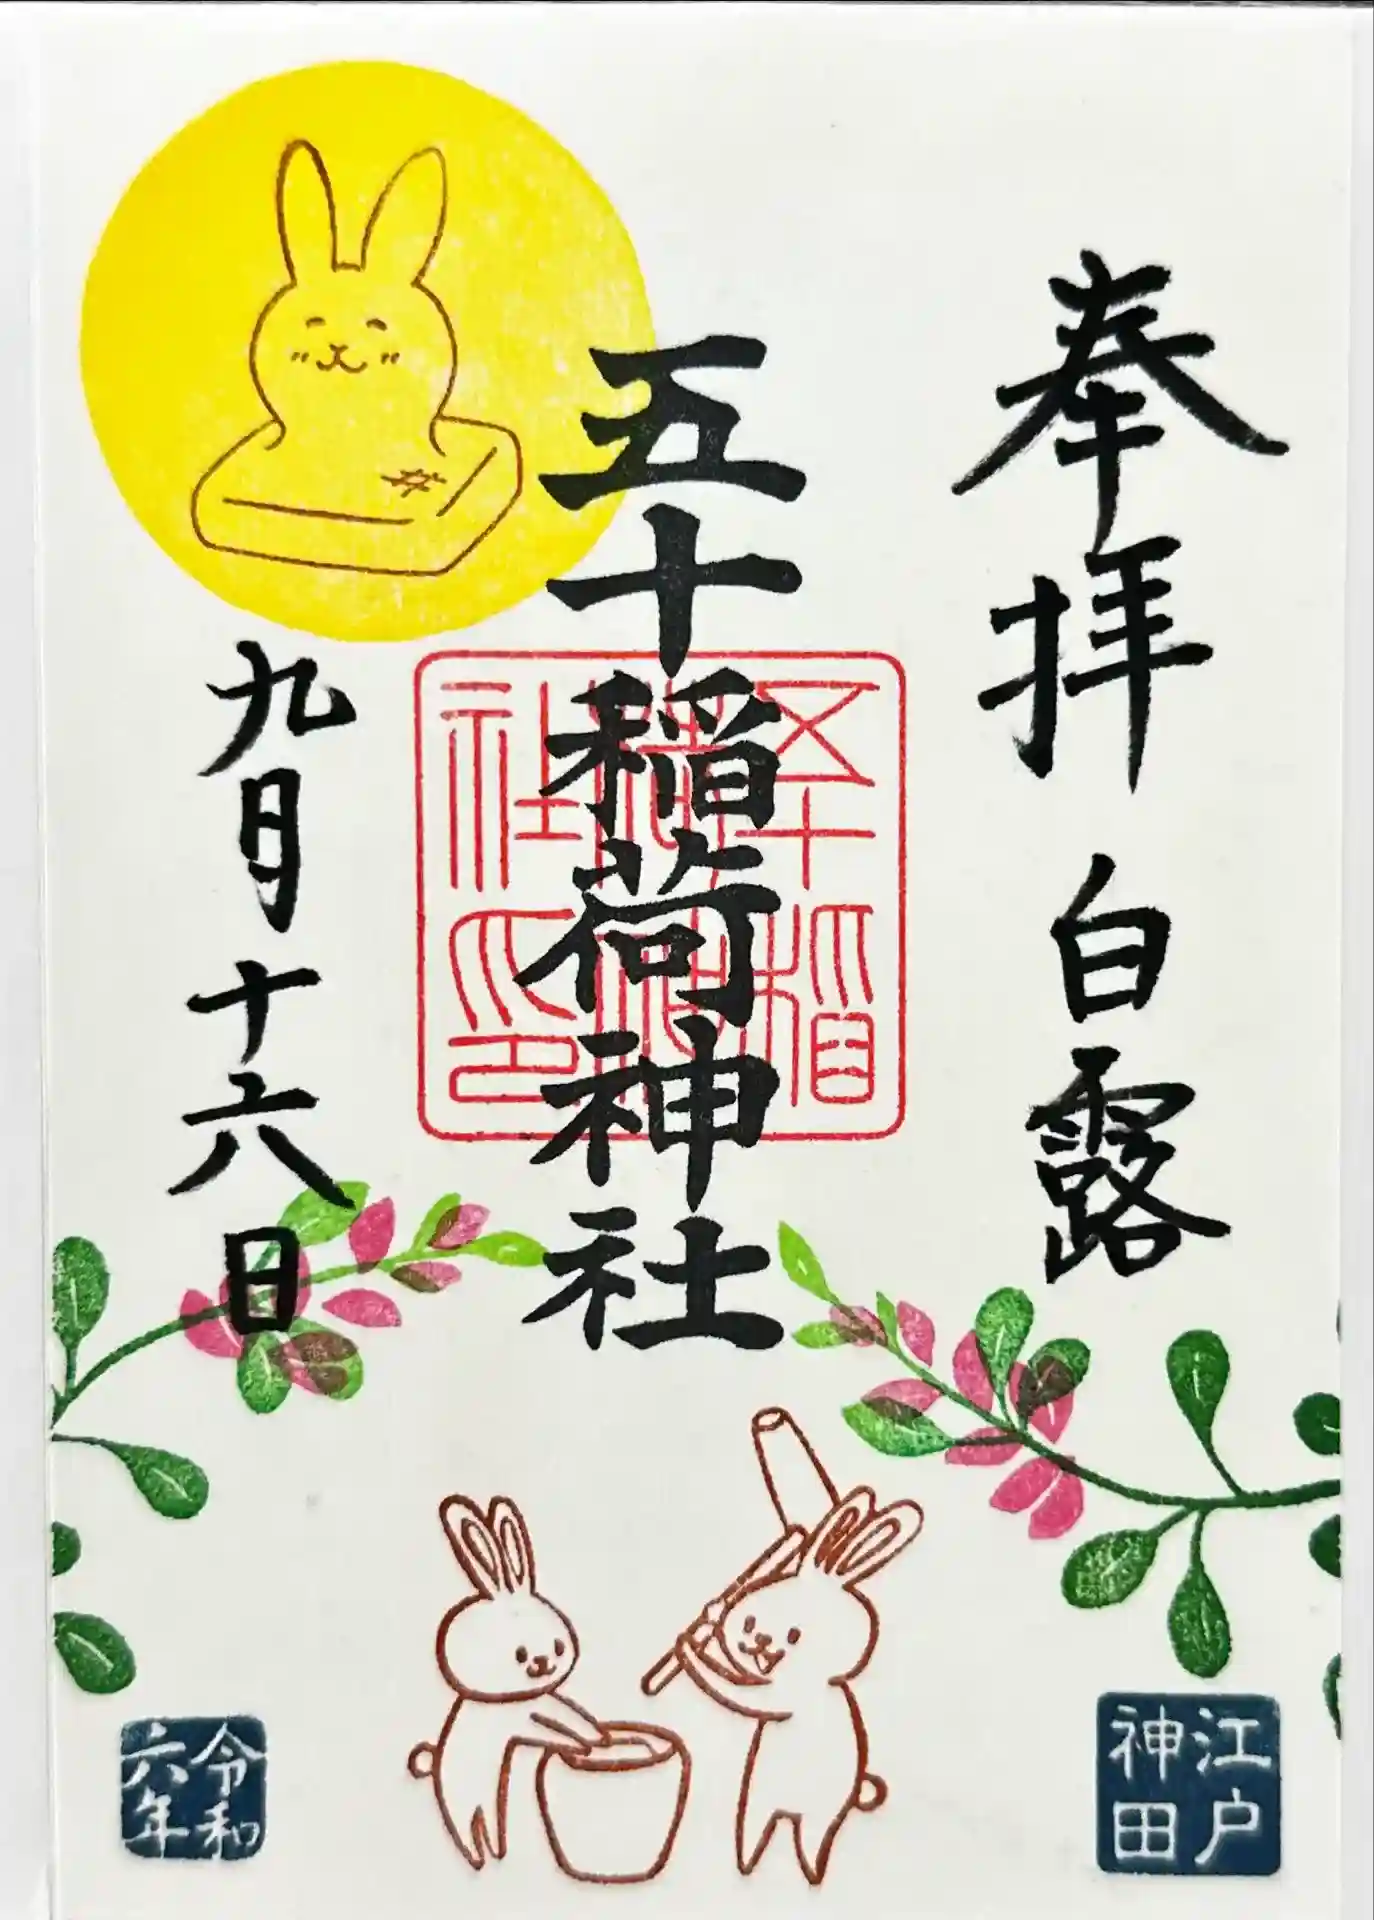 奉拝 白露
五十稲荷神社
九月十六日
五十稲
社印
江戸
神田
令和
六年